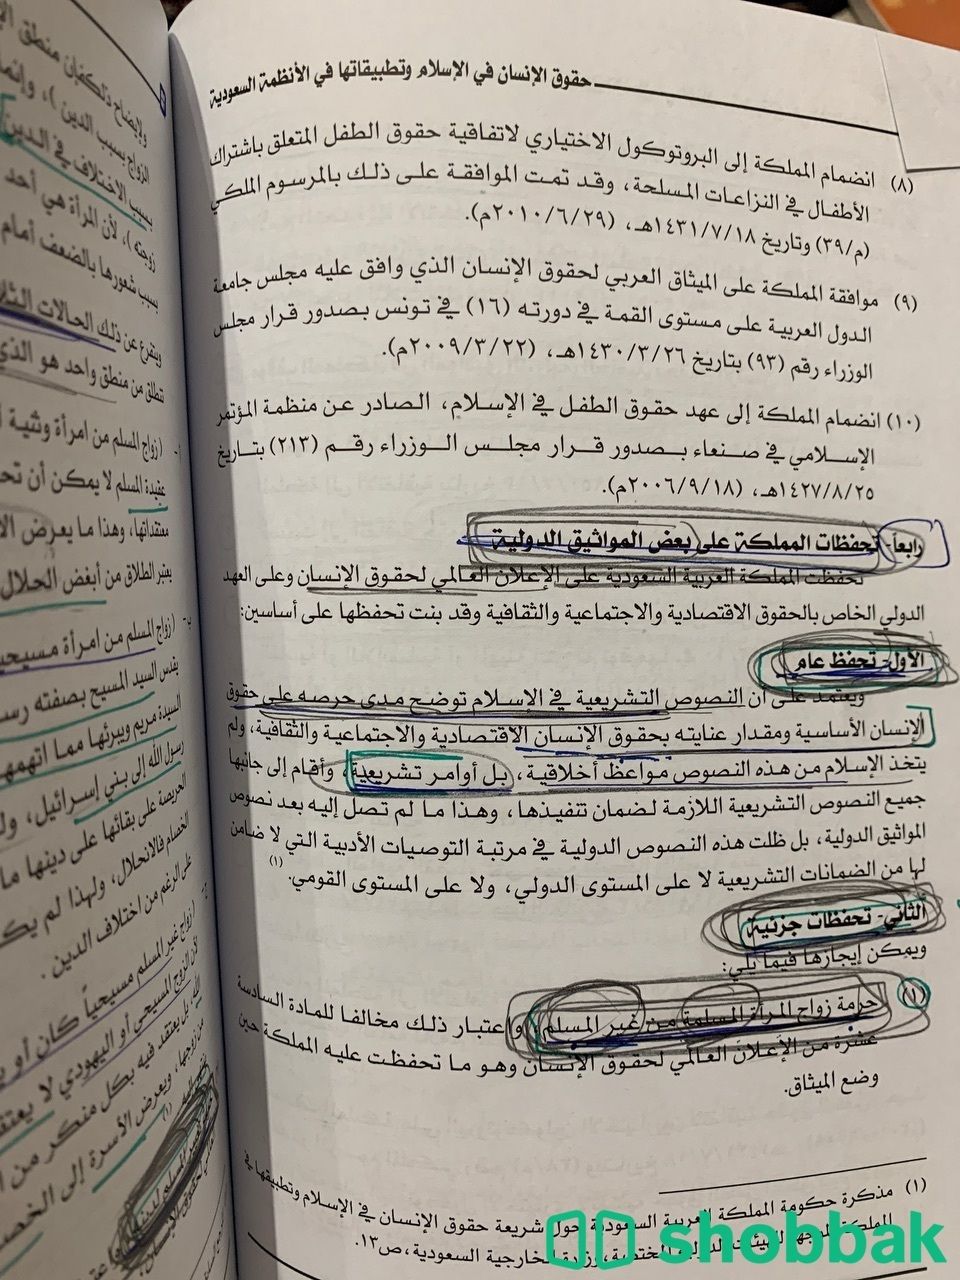 حقوق الإنسان في الإسلام وتطبيقاتها في الأنظمة السعودية
(٨) انضمام المملكة إلى البروتوكول الاختياري لاتفاقية حقوق الطفل المتعلق باشتراك
الأطفال في النزاعات المسلحة، وقد تمت الموافقة على ذلك بالمرسوم الملكي
(م/٣٩) وتاريخ ١٤٣١/٧/١٨هـ، (٢٠١٠/٦/٢٩م).
(٩) موافقة المملكة على الميثاق العربي لحقوق الإنسان الذي وافق عليه مجلس جامعة
الدول العربية على مستوى القمة في دورته (١٦) في تونس بصدور قرار مجلس
الوزراء رقم (٩٣) بتاريخ ١٤٣٠/٣/٢٦هـ، (٢٠٠٩/٣/٢٢م).
(١٠) انضمام المملكة إلى عهد حقوق الطفل في الإسلام، الصادر عن منظمة المؤتمر
الإسلامي في صنعاء بصدور قرار مجلس الوزراء رقم (٢١٣) بتاريخ
١٤٢٧/٨/٢٥هـ، (٢٠٠٦/٩/١٨م).
رابعاً- تحفظات المملكة على بعض المواثيق الدولية
تحفظت المملكة العربية السعودية على الإعلان العالمي لحقوق الإنسان وعلى العهد
الدولي الخاص بالحقوق الاقتصادية والاجتماعية والثقافية وقد بنت تحفظها على أساسين:
الأول- تحفظ عام
ويعتمد على أن النصوص التشريعية في الإسلام توضح مدى حرصه على حقوق
الإنسان الأساسية ومقدار عنايته بحقوق الإنسان الاقتصادية والاجتماعية والثقافية، ولم
يتخذ الإسلام من هذه النصوص مواعظ أخلاقية، بل أوامر تشريعية، وأقام إلى جانبها
جميع النصوص التشريعية اللازمة لضمان تنفيذها، وهذا ما لم تصل إليه بعد نصوص
المواثيق الدولية، بل ظلت هذه النصوص الدولية في مرتبة التوصيات الأدبية التي لا ضامن
لها من الضمانات التشريعية لا على المستوى الدولي، ولا على المستوى القومي.(١)
الثاني- تحفظات جزئية
ويمكن إيجازها فيما يلي:
(١) حرمة زواج المرأة المسلمة من غير المسلم، واعتبار ذلك مخالفا للمادة السادسة
عشرة من الإعلان العالمي لحقوق الإنسان وهو ما تحفظت عليه المملكة حين
وضع الميثاق.
(١) مذكرة حكومة المملكة العربية السعودية حول شريعة حقوق الإنسان في الإسلام وتطبيقها في
المملكة الموجهة للهيئات الدولية المختصة، وزارة الخارجية السعودية، ص١٣.
shobbak
ولإيضاح ذلك فإن منطق
الزواج بسبب الدين)، وإنما
بسبب الاختلاف في الدين
زوجته)، لأن المرأة هي أحد
بسبب شعورها بالضعف أمام
ويتفرع عن ذلك الحالات
تنطلق من منطق واحد هو الذي
(زواج المسلم من امرأة وثنية
عقيدة المسلم لا يمكن أن
معتقداتها، وهذا ما يعرض
يعتبر الطلاق من أبغض الحلال
ب- (زواج المسلم من امرأة
يقدس السيد المسيح بصفته
السيدة مريم ويبرئها مما اتهمها
رسول الله إلى بني إسرائيل،
الحريصة على بقائها على دينها
الخصام فالانحلال، ولهذا لم
على الرغم من اختلاف الدين.
(زواج غير المسلم مسيحياً كان أو
لأن الزوج المسيحي أو اليهودي لا
الله، بل يعتقد فيه بكل منكر من
من زوجها، ويعرض الأسرة إلى